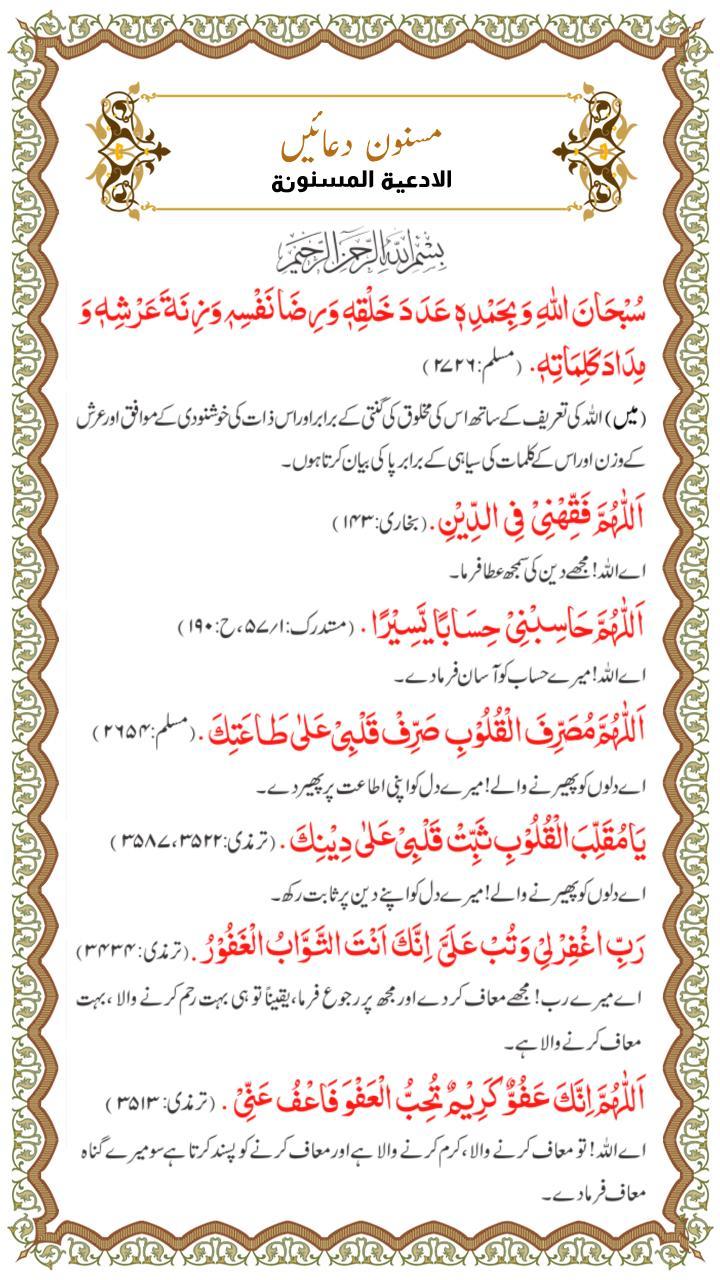 مسنون دعائیں
الادعية المسنونة
بِسْمِ اللهِ الرَّحْمٰنِ الرَّحِيْمِ
سُبْحَانَ اللهِ وَبِحَمْدِهٖ عَدَدَ خَلْقِهٖ وَرِضَا نَفْسِهٖ وَزِنَةَ عَرْشِهٖ وَ
مِدَادَ كَلِمَاتِهٖ. (مسلم:۲۷۲۶)
(میں) اللہ کی تعریف کے ساتھ اس کی مخلوق کی گنتی کے برابر اور اس ذات کی خوشنودی کے موافق اور عرش
کے وزن اور اس کے کلمات کی سیاہی کے برابر پا کی بیان کرتا ہوں۔
اَللّٰهُمَّ فَقِّهْنِيْ فِي الدِّيْنِ. (بخاری:۱۴۳)
اے اللہ! مجھے دین کی سمجھ عطا فرما۔
اَللّٰهُمَّ حَاسِبْنِيْ حِسَابًا يَّسِيْرًا. (مستدرک:۵۷/۱، ح:۱۹۰)
اے اللہ! میرے حساب کو آسان فرما دے۔
اَللّٰهُمَّ مُصَرِّفَ الْقُلُوْبِ صَرِّفْ قَلْبِيْ عَلٰى طَاعَتِكَ. (مسلم:۲۶۵۴)
اے دلوں کو پھیرنے والے! میرے دل کو اپنی اطاعت پر پھیر دے۔
يَا مُقَلِّبَ الْقُلُوْبِ ثَبِّتْ قَلْبِيْ عَلٰى دِيْنِكَ. (ترمذی:۳۵۲۲، ۳۵۸۷)
اے دلوں کو پھیرنے والے! میرے دل کو اپنے دین پر ثابت رکھ۔
رَبِّ اغْفِرْ لِيْ وَتُبْ عَلَيَّ اِنَّكَ اَنْتَ التَّوَّابُ الْغَفُوْرُ. (ترمذی:۳۴۳۴)
اے میرے رب! مجھے معاف کر دے اور مجھ پر رجوع فرما، یقیناً تو ہی بہت رحم کرنے والا، بہت
معاف کرنے والا ہے۔
اَللّٰهُمَّ اِنَّكَ عَفُوٌّ كَرِيْمٌ تُحِبُّ الْعَفْوَ فَاعْفُ عَنِّيْ. (ترمذی:۳۵۱۳)
اے اللہ! تو معاف کرنے والا، کرم کرنے والا ہے اور معاف کرنے کو پسند کرتا ہے سو میرے گناہ
معاف فرما دے۔